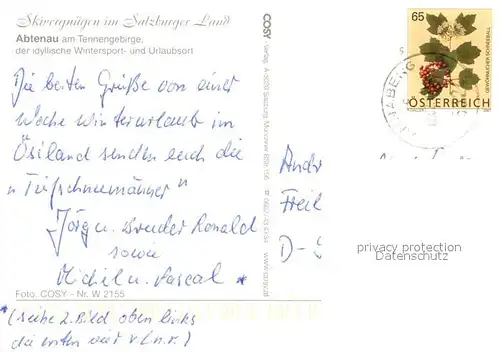 Skivergnügen im Salzburger Land
Abtenau am Tennengebirge,
der idyllische Wintersport- und Urlaubsort
Die besten Grüße von einer
Woche Winterurlaub im
Ösiland senden euch die
"Tiefschneemänner"
Jörg u. Bruder Ronald
sowie
Michel u. Pascal *
Foto: COSY - Nr. W 2155
*(siehe 2. Bild oben links
die unten vier v.l.n.r.)
COSY
Verlag, A-5020 Salzburg
COSY
65
GEWÖHNLICHER SCHNEEBALL
ÖSTERREICH
Andr
Freil
D-
privacy protection
Datenschutz